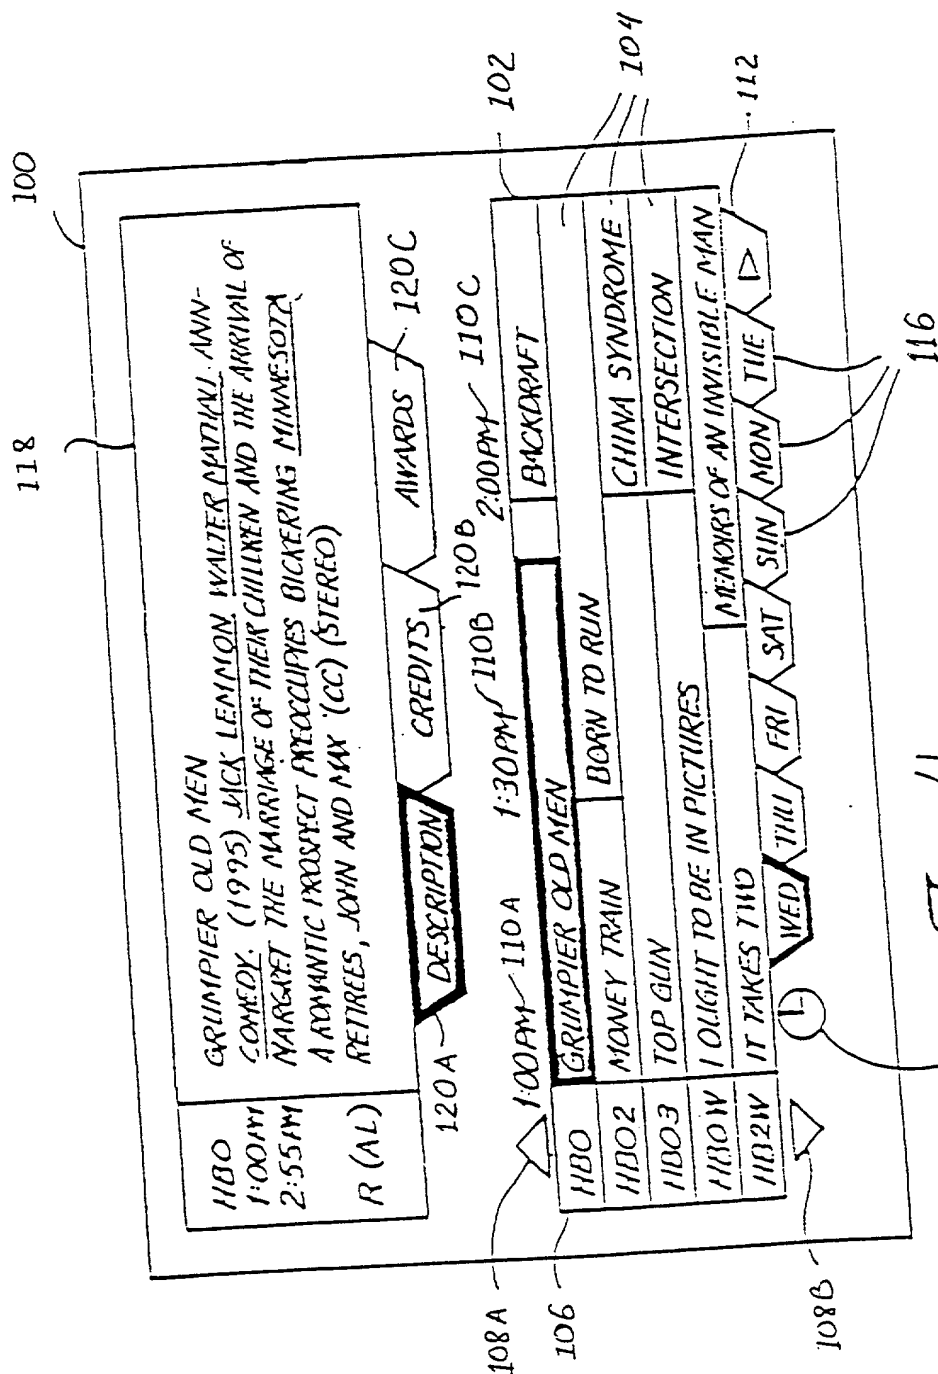 100
118
HBO
1:00PM
2:55PM
R (AL)
GRUMPIER OLD MEN
COMEDY. (1995) JACK LEMMON WALTER MATHAU. ANN-
MARGRET THE MARRIAGE OF THEIR CHILDREN AND THE ARRIVAL OF
A ROMANTIC PROSPECT PREOCCUPIES BICKERING MINNESOTA
RETIREES, JOHN AND MAX (CC) (STEREO)
DESCRIPTION
CREDITS
AWARDS
120A
120B
120C
108A
1:00PM 110A
1:30PM 110B
2:00PM 110C
102
106
104
HBO GRUMPIER OLD MEN BACKDRAFT
HBO2 MONEY TRAIN BORN TO RUN CHINA SYNDROME
HBO3 TOP GUN INTERSECTION
HBOW I OUGHT TO BE IN PICTURES
HB2W IT TAKES TWO MEMOIRS OF AN INVISIBLE MAN
WED THU FRI SAT SUN MON TUE
112
108B
116